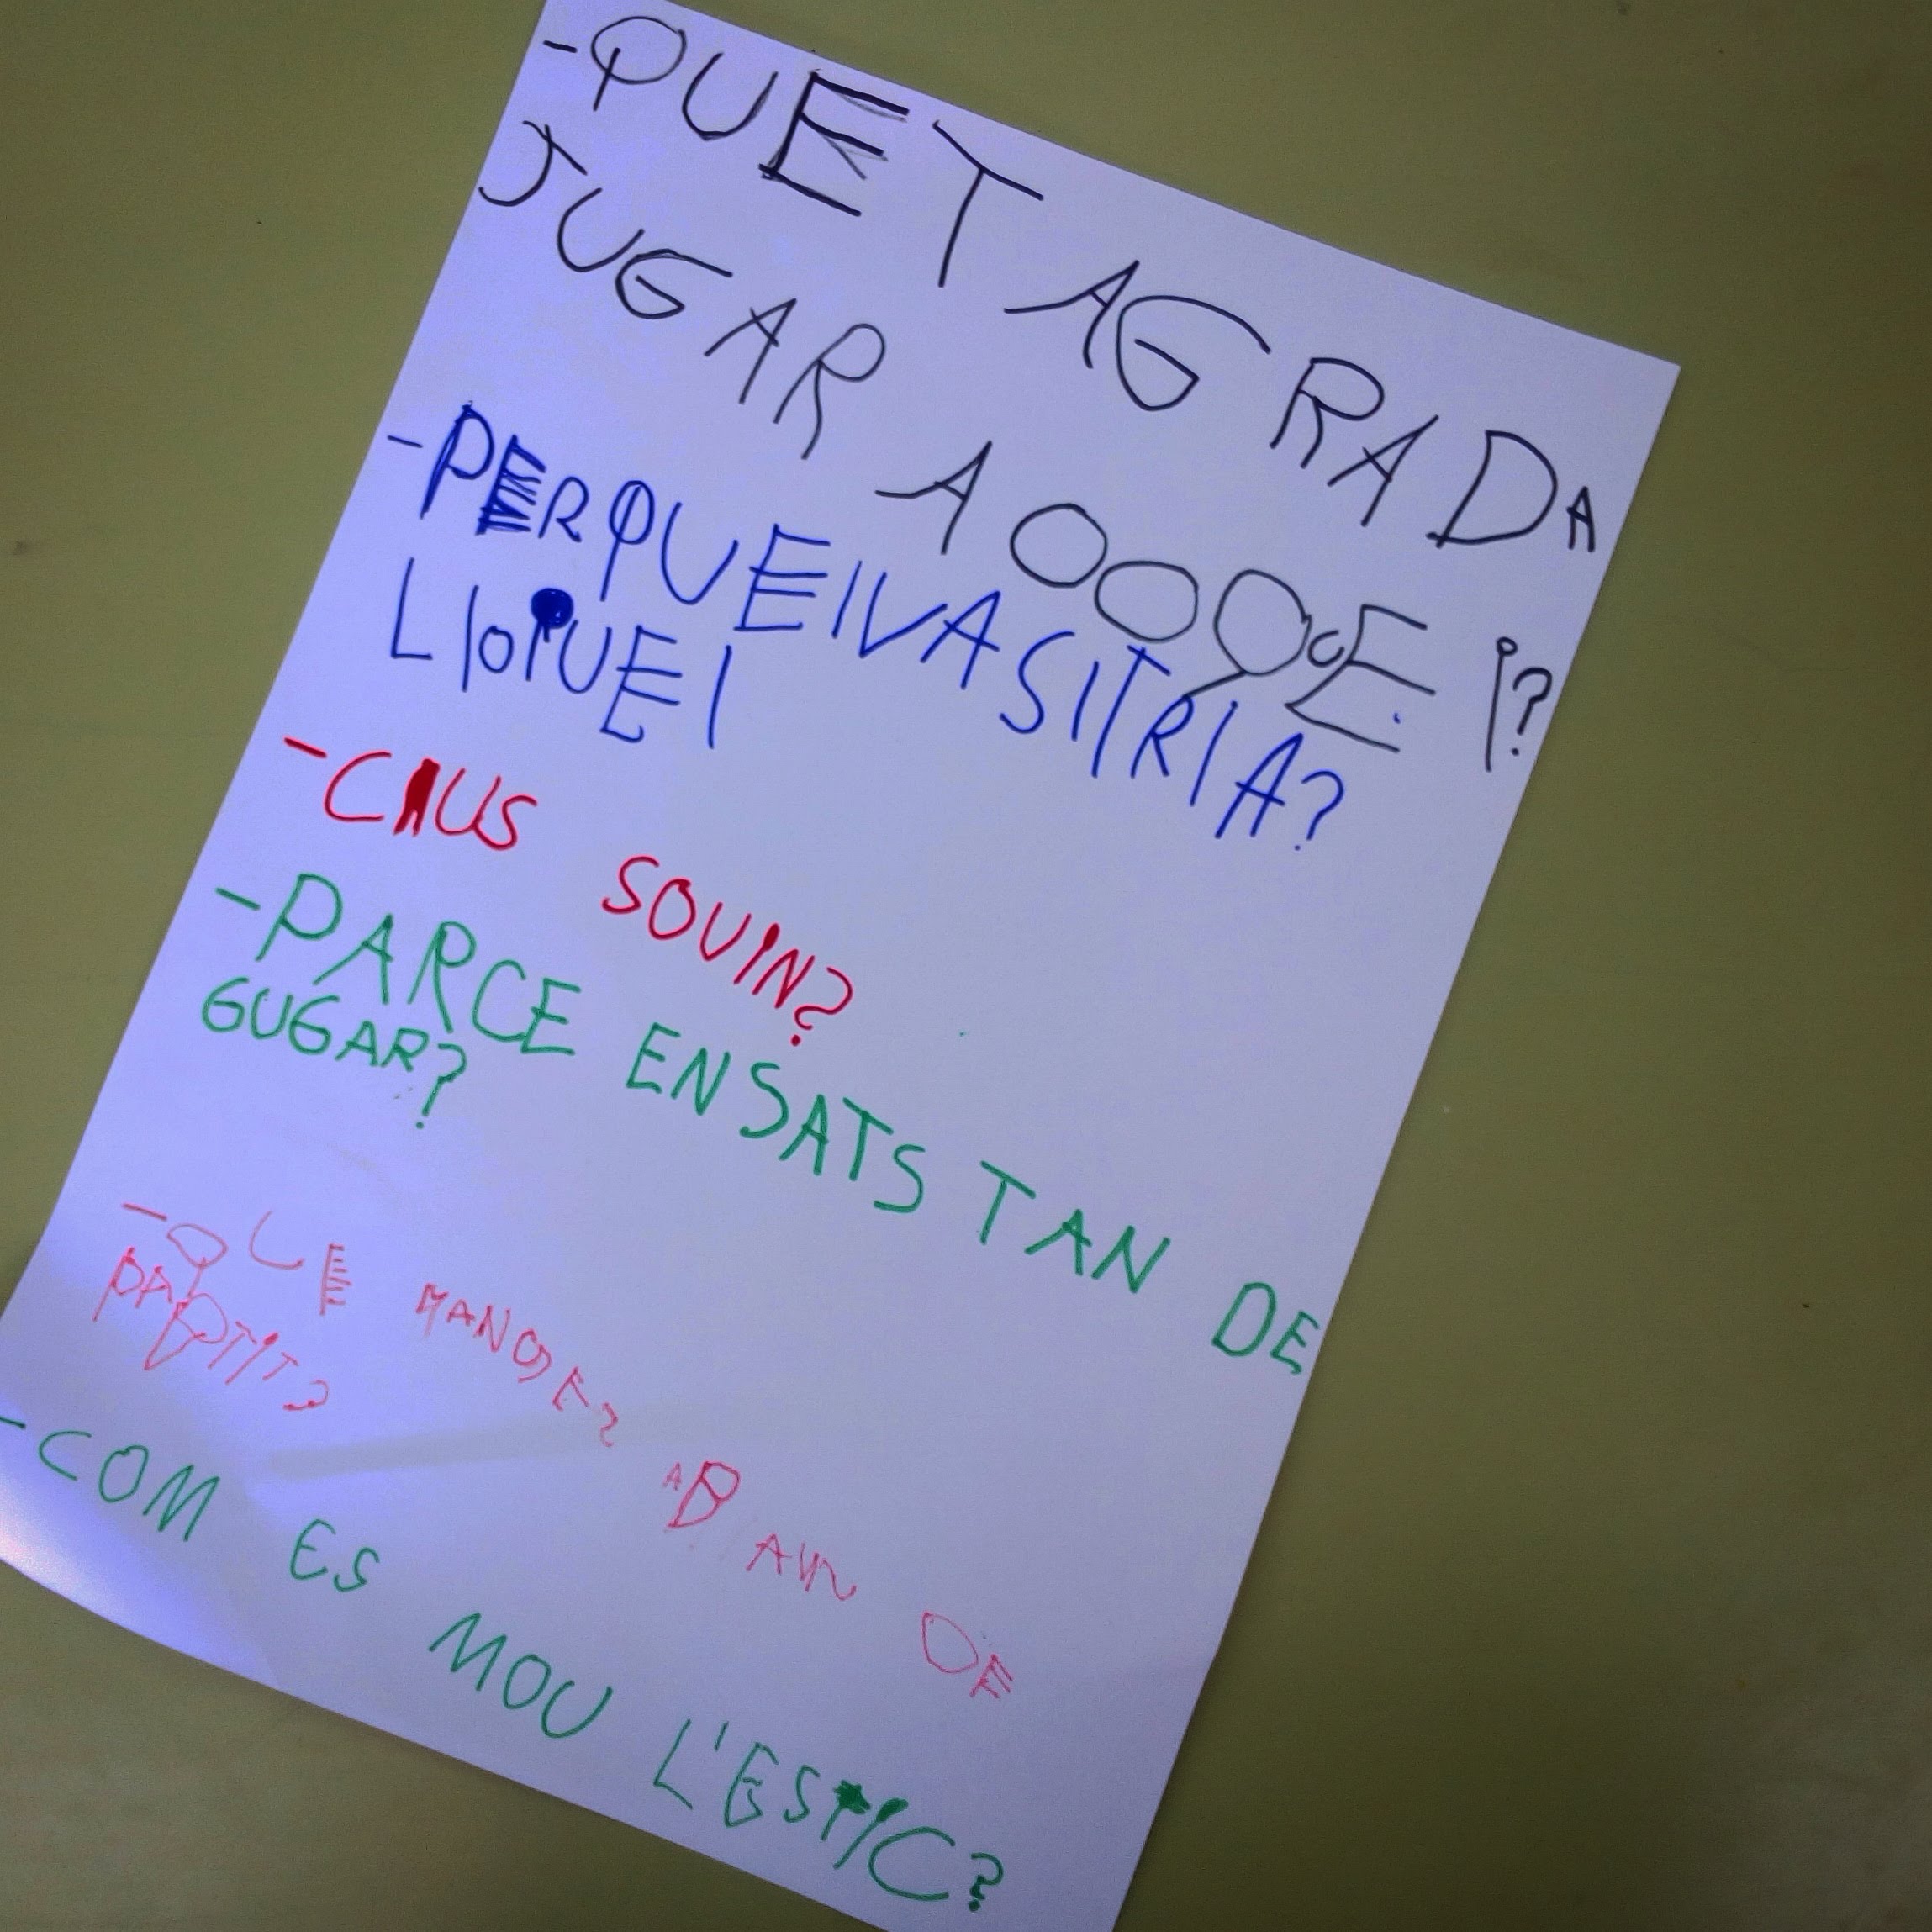 -QUE T AGRADA
JUGAR A OOQcE I?
-PERQUEIVASITRIA?
LIOQUEI
-CAUS SOVIN?
-PARCE ENSATS TAN DE
GUGAR?
-QUE MANGES ABAN DE
PARTIT?
-COM ES MOU L'ESTIC?